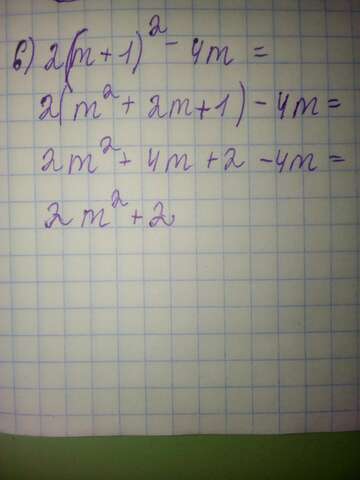 б) 2(m+1)² - 4m =
2(m² + 2m + 1) - 4m =
2m² + 4m + 2 - 4m =
2m² + 2